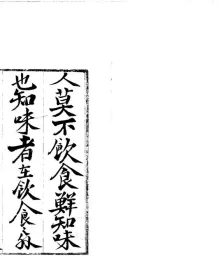 人莫不飲食鮮知味
也知味者在飲食